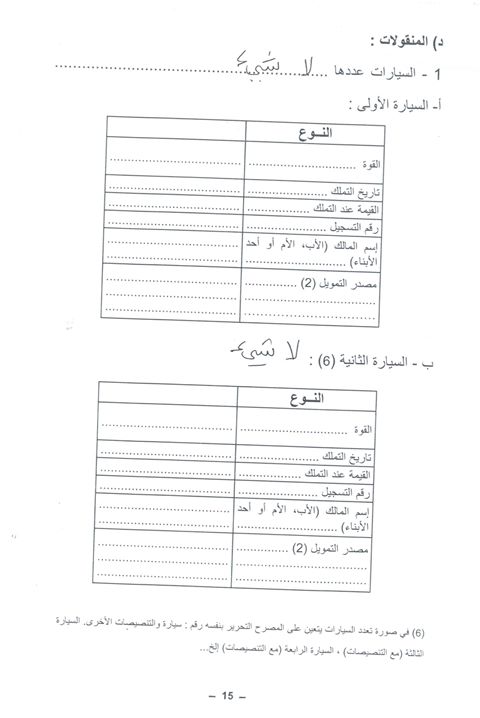 د) المنقولات :
1 - السيارات عددها ........ لا شيء ........
أ- السيارة الأولى :
النـــوع
القوة ..............................
تاريخ التملك ......................
القيمة عند التملك ..................
رقم التسجيل ......................
إسم المالك (الأب، الأم أو أحد
الأبناء) ............................
مصدر التمويل (2) ..............
ب - السيارة الثانية (6) : لا شيء
النـــوع
القوة ..............................
تاريخ التملك ......................
القيمة عند التملك ..................
رقم التسجيل ......................
إسم المالك (الأب، الأم أو أحد
الأبناء) ............................
مصدر التمويل (2) ..............
(6) في صورة تعدد السيارات يتعين على المصرح التحرير بنفسه رقم : سيارة والتنصيصات الأخرى. السيارة
الثالثة (مع التنصيصات) ، السيارة الرابعة (مع التنصيصات) إلخ...
– 15 –